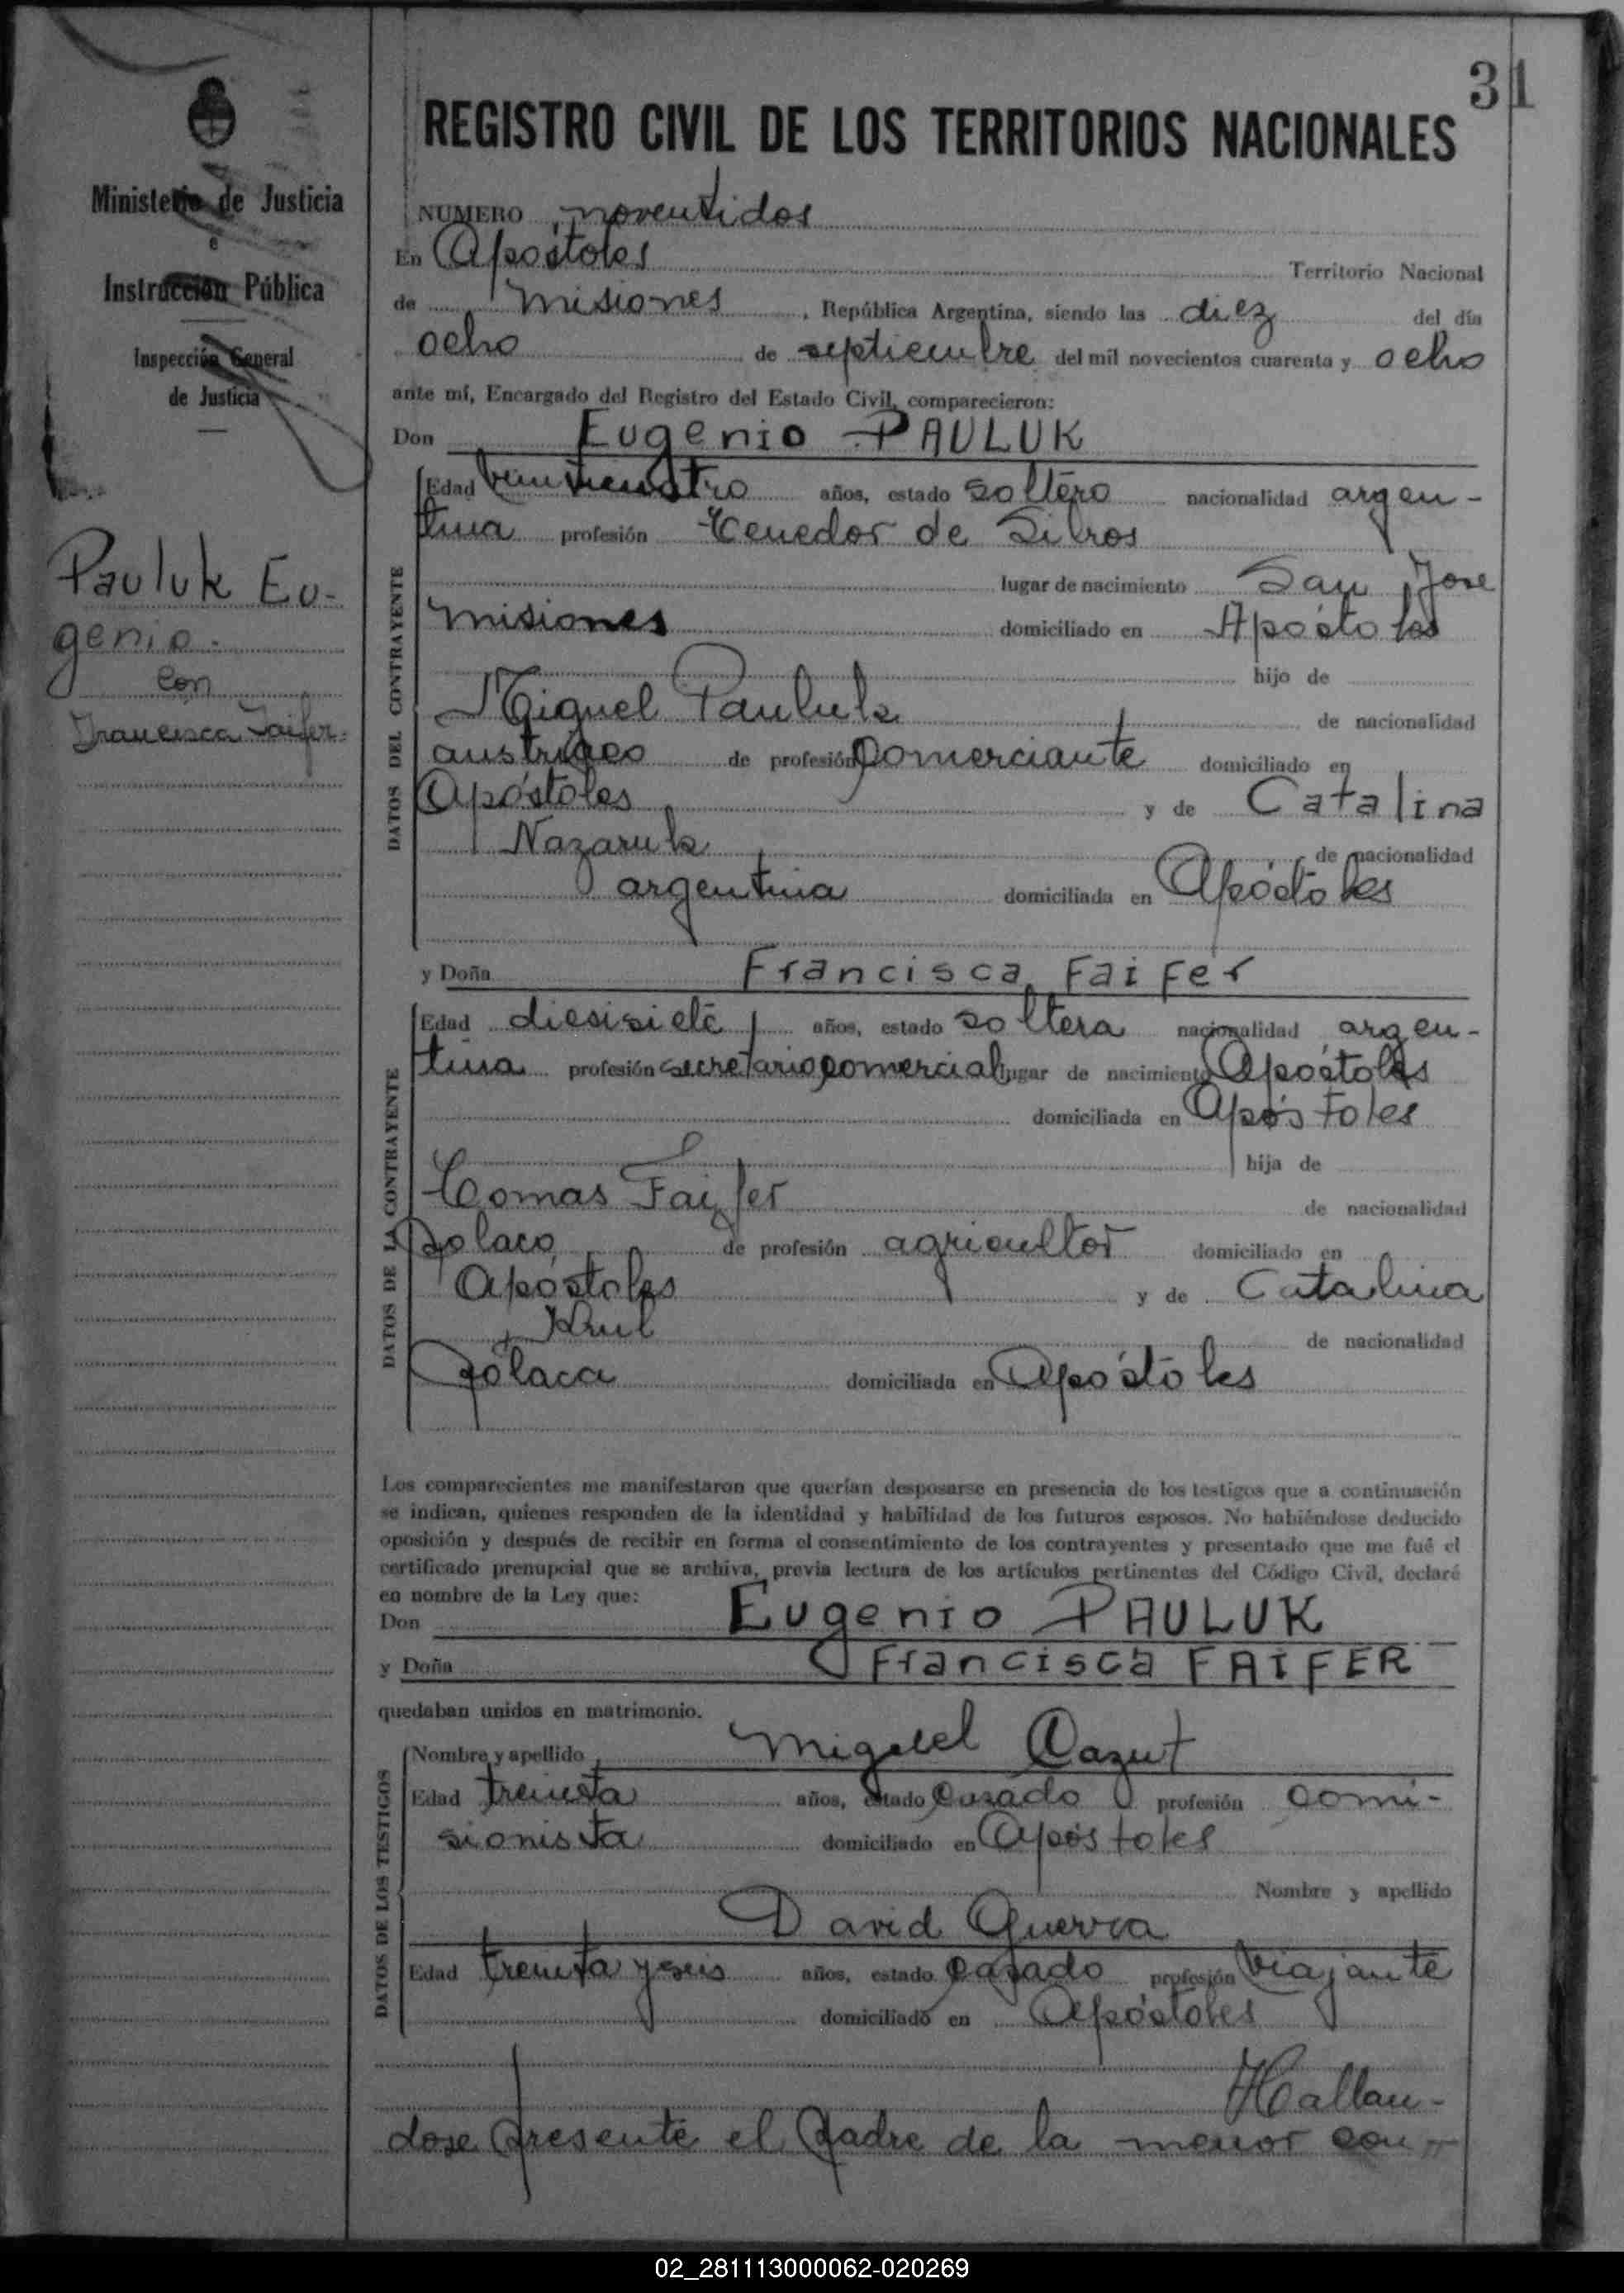 31
REGISTRO CIVIL DE LOS TERRITORIOS NACIONALES
Ministerio de Justicia
e
Instrucción Pública
Inspección General
de Justicia
Pauluk Eu-
genio.
con
Francisca Faifer.
NUMERO noventidos
En Apóstoles Territorio Nacional
de misiones, República Argentina, siendo las diez del día
ocho de septiembre del mil novecientos cuarenta y ocho
ante mí, Encargado del Registro del Estado Civil, comparecieron:
Don Eugenio PAULUK
DATOS DEL CONTRAYENTE
Edad años, estado soltero nacionalidad argen-
tina profesión Tenedor de Libros
lugar de nacimiento San Jose
misiones domiciliado en Apóstoles
hijo de
Miguel Pauluk de nacionalidad
austríaco de profesión comerciante domiciliado en
Apóstoles y de Catalina
Nazaruk de nacionalidad
argentina domiciliada en Apóstoles
y Doña Francisca Faifer
DATOS DE LA CONTRAYENTE
Edad diesisiete años, estado soltera nacionalidad argen-
tina profesión secretario comercial lugar de nacimiento Apóstoles
domiciliada en Apóstoles
hija de
Tomas Faifer de nacionalidad
polaco de profesión agricultor domiciliado en
Apóstoles y de Catalina
Krul de nacionalidad
polaca domiciliada en Apóstoles
Los comparecientes me manifestaron que querían desposarse en presencia de los testigos que a continuación
se indican, quienes responden de la identidad y habilidad de los futuros esposos. No habiéndose deducido
oposición y después de recibir en forma el consentimiento de los contrayentes y presentado que me fué el
certificado prenupcial que se archiva, previa lectura de los artículos pertinentes del Código Civil, declaré
en nombre de la Ley que:
Don Eugenio PAULUK
y Doña Francisca FAIFER
quedaban unidos en matrimonio.
DATOS DE LOS TESTIGOS
Nombre y apellido Miguel Cazut
Edad treinta años, estado casado profesión comi-
sionista domiciliado en Apóstoles
Nombre y apellido
David Guerra
Edad treinta y seis años, estado casado profesión viajante
domiciliado en Apóstoles
Hallan-
dose presente el padre de la menor con-
02_281113000062-020269